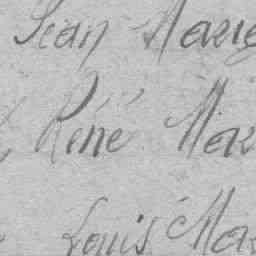 Jean Marie
René Mar
Louis Mar